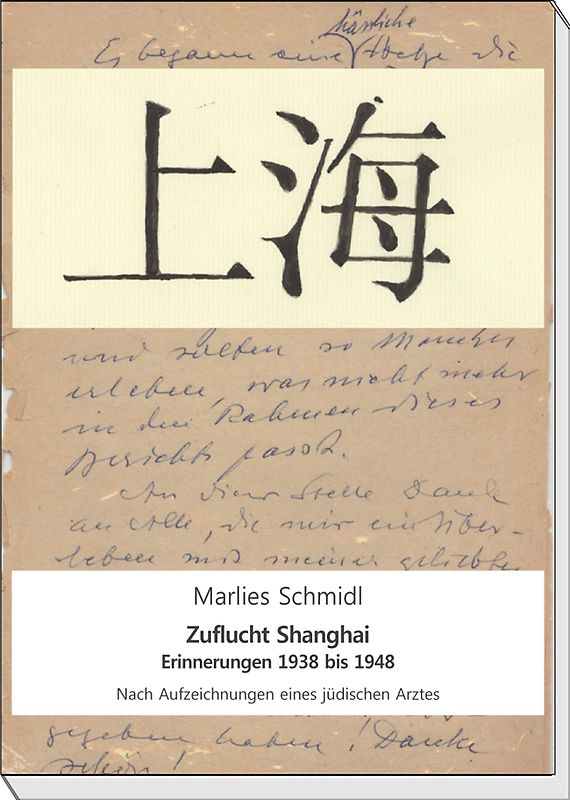 hässliche
Es begann eine Hetze die
上海
und sollten so Manches
erleben, was nicht mehr
in den Rahmen dieses
Berichts passt.
An dieser Stelle Dank
an Alle, die mir ein Über-
leben mit meiner geliebten
Marlies Schmidl
Zuflucht Shanghai
Erinnerungen 1938 bis 1948
Nach Aufzeichnungen eines jüdischen Arztes
gegeben haben! Danke
schön!